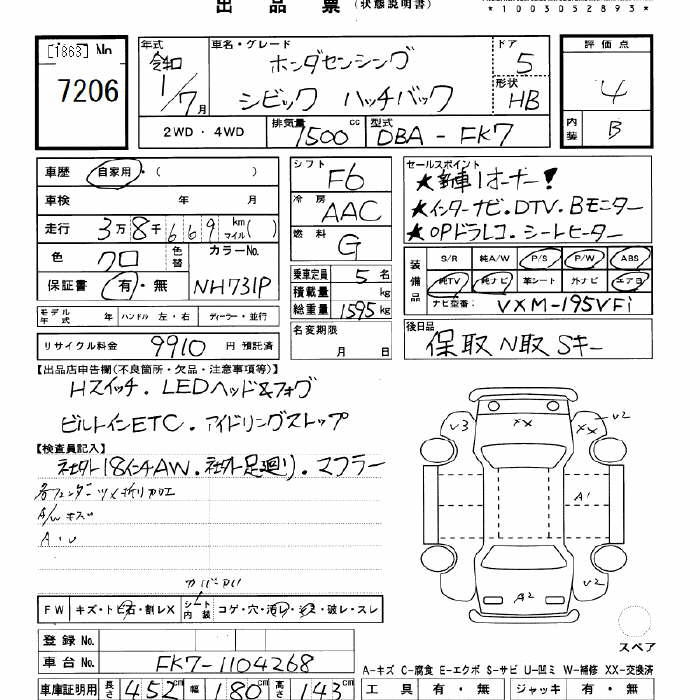 出品票 (状態説明書)
*1003052893*
[1863] No 7206
年式 令和 1/7月
車名・グレード ホンダセンシング シビック ハッチバック
ドア 5
形状 HB
評価点 4
内装 B
2WD・4WD
排気量 1500 cc
型式 DBA-FK7
車歴 自家用・( )
車検 年 月
走行 3万8千669 km マイル( )
色 クロ 色替 カラーNo. NH731P
保証書 有・無
シフト F6
冷房 AAC
燃料 G
乗車定員 5 名
積載量 kg
総重量 1595 kg
セールスポイント
★新車1オーナー!
★インターナビ.DTV.Bモニター
★OPドラレコ.シートヒーター
装備品
S/R 純A/W P/S P/W ABS
純TV 純ナビ 革シート 外ナビ エアB
ナビ型番: VXM-195VFi
モデル年式 年 ハンドル 左・右 ディーラー・並行
名変期限 月 日
後日品 保取 N取 Sキー
リサイクル料金 9910 円 預託済
【出品店申告欄(不良箇所・欠品・注意事項等)】
Hスイッチ.LEDヘッド&フォグ
ビルトインETC.アイドリングストップ
【検査員記入】
社外18インチAW.社外足廻り.マフラー
各フェンダーツメ折り加工
A/Wキズ
A.U
V3 XX XX V2
A1
V2
A2
カバー
FW キズ・トビ石・割レX シート内装 コゲ・穴・汚レ・シミ・破レ・スレ
スペア
登録No.
車台No. FK7-1104268
A-キズ C-腐食 E-エクボ S-サビ U-凹ミ W-補修 XX-交換済
車庫証明用 長さ 452 cm 幅 180 cm 高さ 143 cm
工具 有・無 ジャッキ 有・無